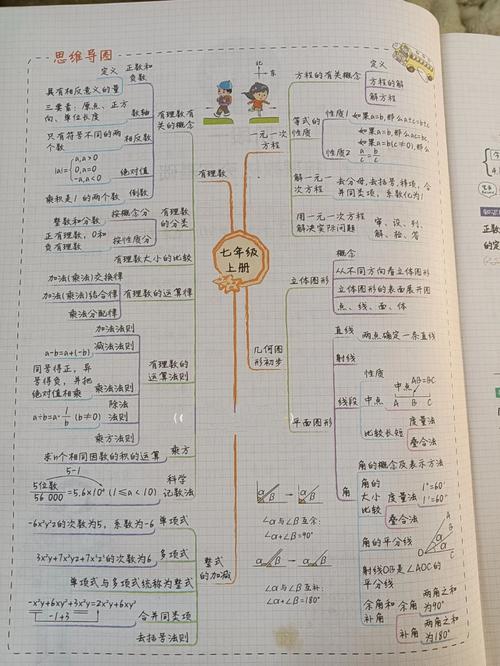 思维导图
七年级
上册
有理数
有理数有
关的概念
定义
正数和
负数
具有相反意义的量
三要素：原点、正方
向、单位长度
数轴
只有符号不同的两
个数
相反数
|a|=
a,a>0
0,a=0
-a,a<0
绝对值
乘积是1的两个数
倒数
有理数
的分类
整数和分数
按概念分
正有理数，0和
负有理数
按性质分
有理数大小的比较
有理数的运算律
加法(乘法)交换律
加法(乘法)结合律
乘法分配律
有理数的
运算法则
加法法则
a-b=a+(-b)
减法法则
同号得正，异
号得负，并把
绝对值相乘
乘法法则
a÷b=a·1/b (b≠0)
除法
法则
乘方法则
求n个相同因数的积的运算
乘方
5-1
5位数
56 000 =5.6×10⁴ (1≤a<10)
科学
记数法
整式
的加减
-6x²y²z的次数为5，系数为-6
单项式
3x²y+7x³yz+7x²z²的次数为6
多项式
单项式与多项式统称为整式
-x²y+6xy+3x²y=2x²y+6xy
-1+3
合并同类项
去括号法则
北
东
一元一次
方程
方程的有关概念
定义
方程的解
解方程
等式的
性质
性质1
如果a=b,那么a±c=b±c
性质2
如果a=b,那么ac=bc
如果a=b(c≠0),那么
a/c=b/c
解一元一
次方程
去分母,去括号,移项,合
并同类项，系数化为1
用一元一次方程
解决实际问题
审、设、列、
解、验、答
几何图
形初步
立体图形
概念
从不同方向看立体图形
立体图形的表面展开图
点、线、面、体
平面图形
直线
两点确定一条直线
射线
线段
性质
中点
中点
AB=BC
A B C
比较长短
度量法
叠合法
角
角的概念及表示方法
角的
大小
比较
度量法
1°=60′
1′=60″
叠合法
角的平分线
A
D
O
C
射线OB是∠AOC的
平分线
余角和
补角
余角
两角之和
为90°
补角
两角之和
为180°
α β → α β
∠α与∠β互余:
∠α+∠β=90°
α β → α β
∠α与∠β互补:
∠α+∠β=180°